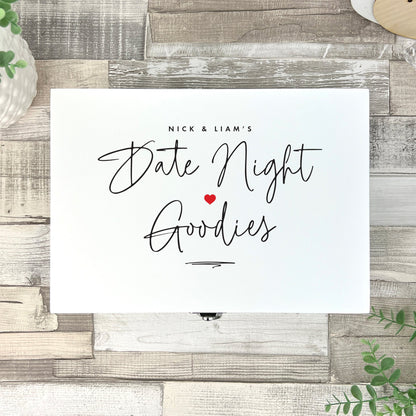 NICK & LIAM'S
Date Night
Goodies